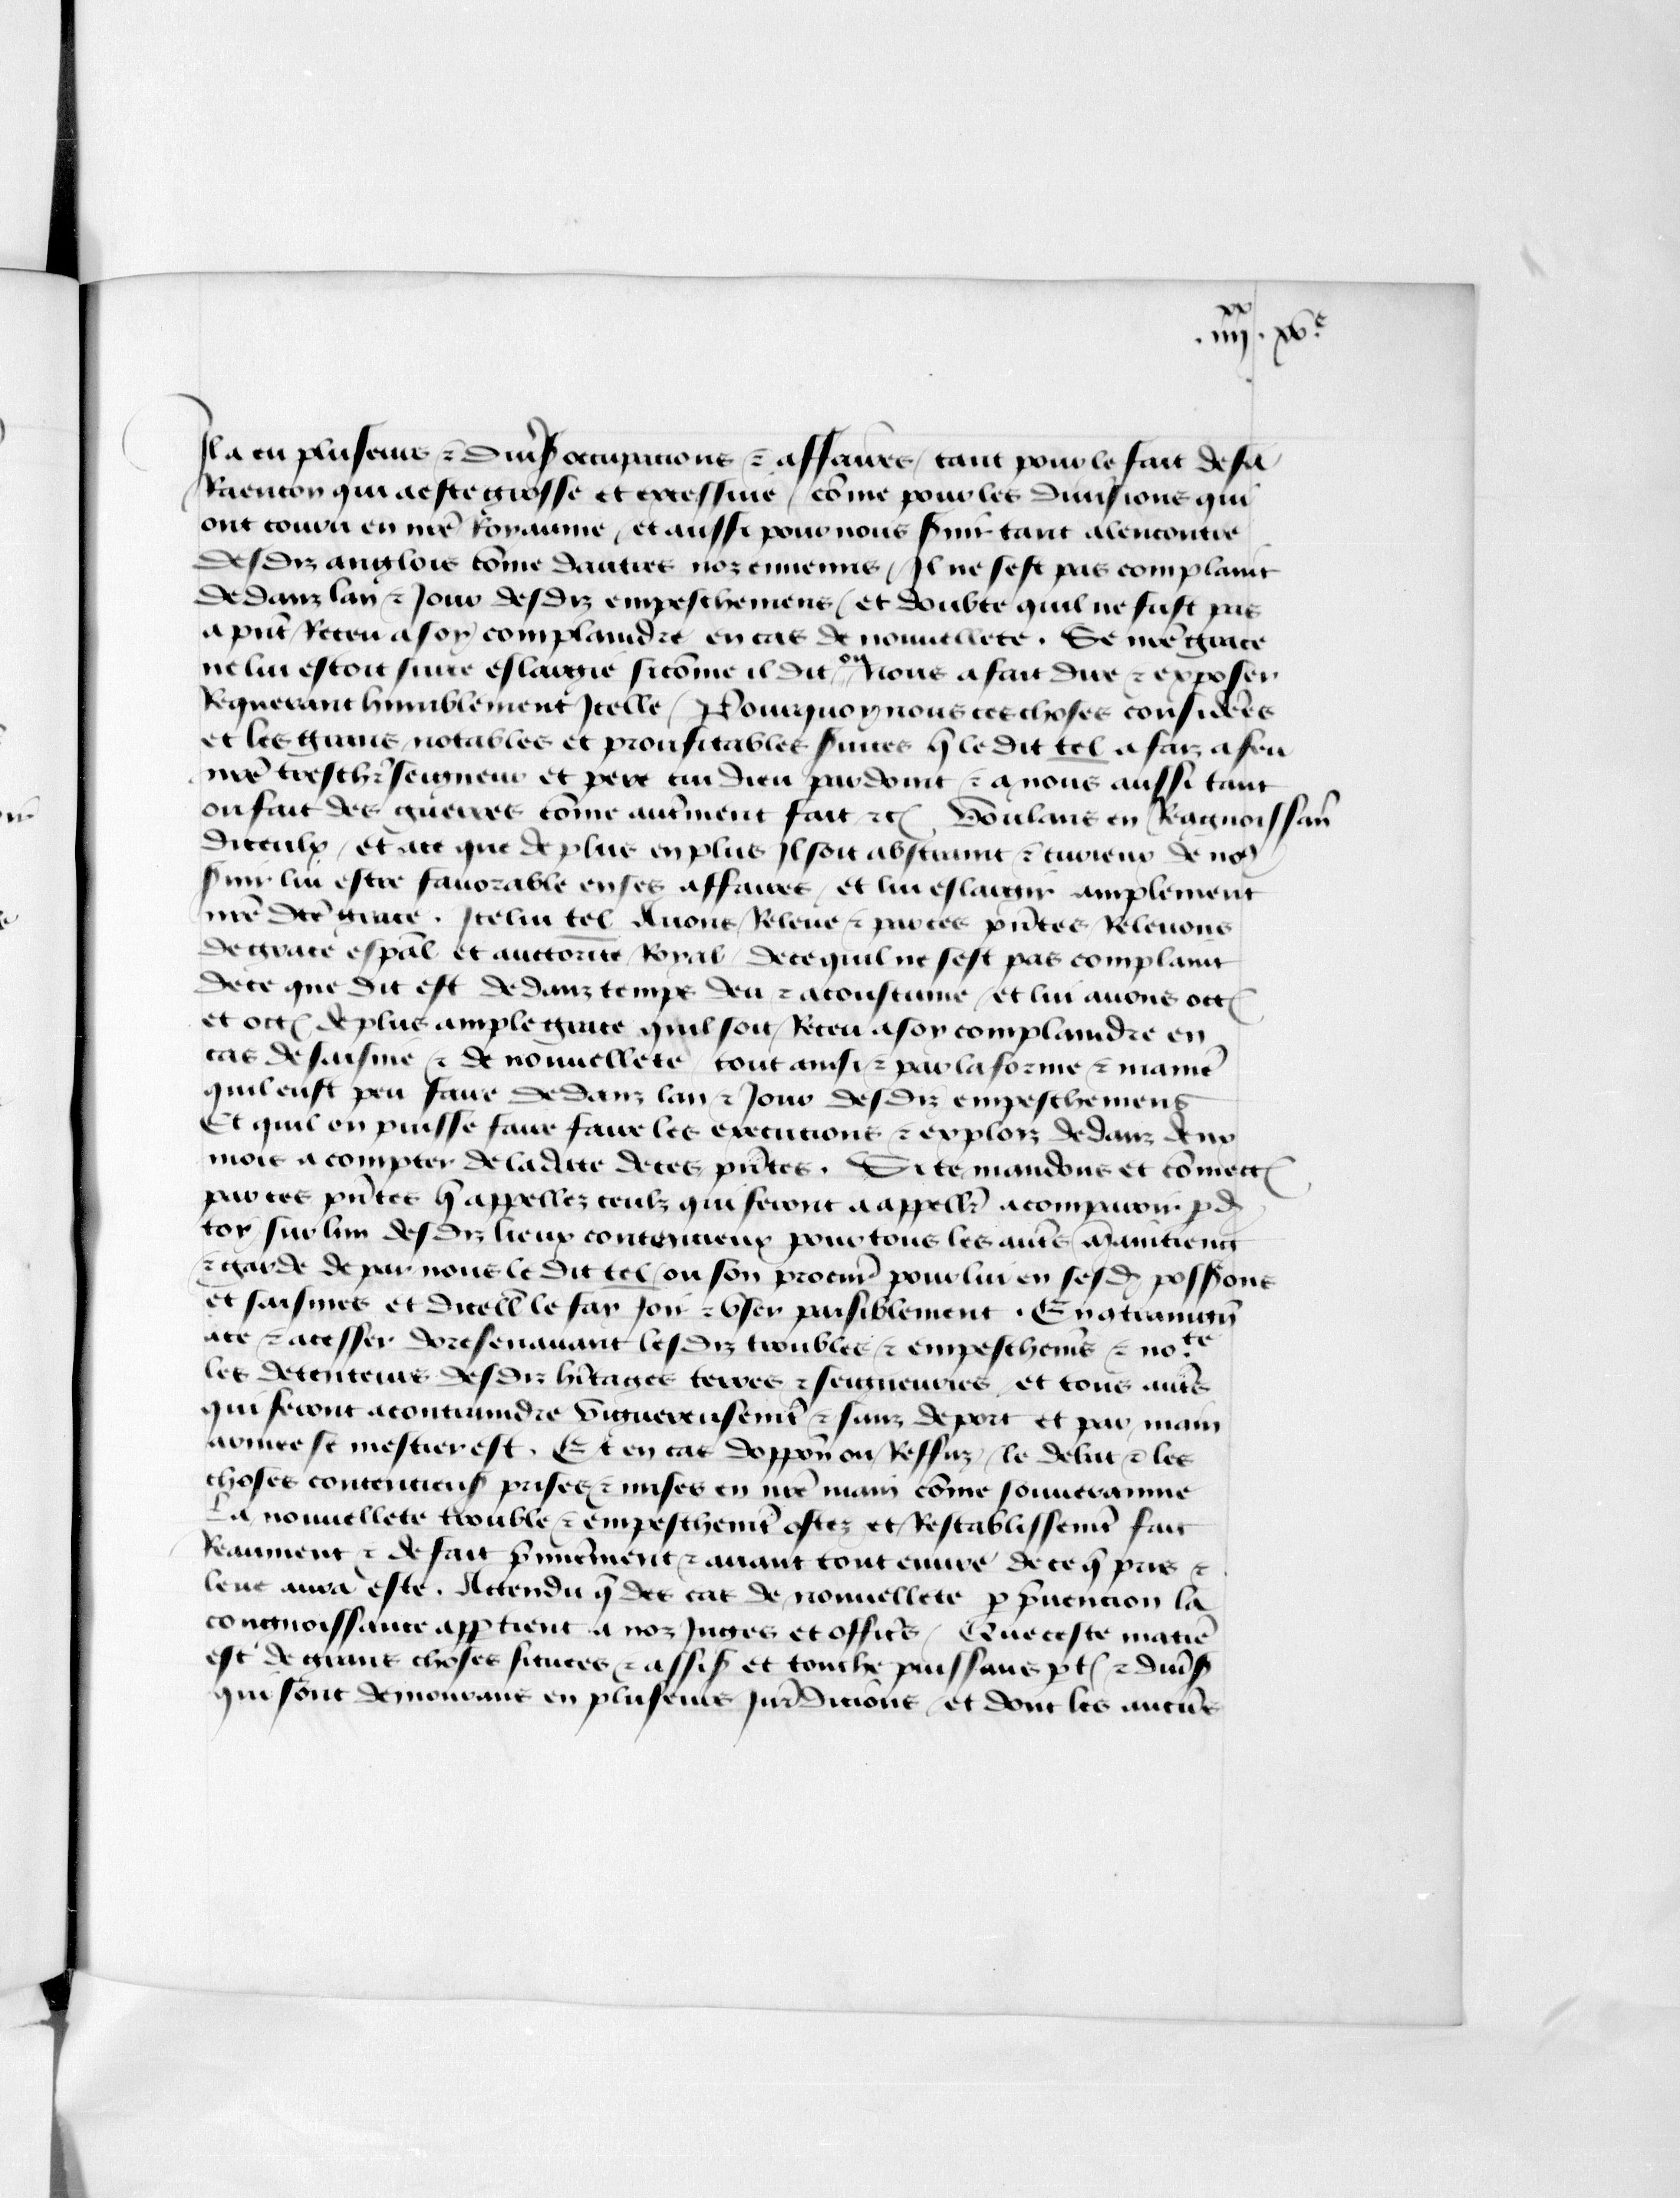 .iiij.xx xv.e
Il a eu pluseurs ⁊ divs̃ occupacions ⁊ affaires / tant pour le fait de sa
Raencon qui a este grosse et excessive / cõme pour les divisions qui
ont couru en nrẽ Royaume / et aussi pour nous sʼvir tant alencontre
desdiz anglois cõme dautres noz ennemis / Il ne sest pas complaint
dedanz lan ⁊ Jour desdiz empeschemens / et doubte quil ne fust pas
a pñt Receu a soy complaindre en cas de nouvellete . Se nrẽ grace
ne lui estoit sur ce eslargie sicõme il dit ou Nous a fait dire ⁊ exposer
Requerant humblement Icelle / Pourquoy nous ces choses considerẽs
et les grans notables et proufitables sʼvices q̃ le dit tel a faiz a feu
nrẽ treschr̃ seigneur et pere cui dieu pardoint ⁊ a nous aussi tant
ou fait des guerres cõme autʼment fait ⁊c̃ Voulans en Recgnoissañ
diceulx / et ace que de plus en plus Il soit abstraint ⁊ curieux de no9
sʼvir lui estre favorable en ses affaires / et lui eslargir amplement
nrẽ dcẽ grace . Icelui tel Avons Releve ⁊ par ces pñtes Relevons
de grace espãl et auctorite Royal / de ce quil ne sest pas complaint
de ce que dit est dedanz temps deu ⁊ acoustume / et lui avons octʼ
et octʼ de plus ample grace quil soit Receu a soy complaindre en
cas de saisine ⁊ de nouvellete tout ainsi ⁊ par la forme ⁊ manẽ
quil eust peu faire dedanz lan ⁊ Jour desdiz empeschemens
Et quil en puisse faire faire les execucions ⁊ exploiz dedanz deux
mois a compter de la date de ces pñtes . Si te mandons et cõmectʼ
par ces pñtes q̃ appellez ceulz qui seront a appellʼ a comparoir p̱dʼ
toy sur lun desdiz lieux contencieux pour tous les autẽs maintieng
⁊ garde de par nous le dit tel / ou son procurʼ pour lui en sesdʼ possʼons
et saisines et dicellʼ le fay Joir ⁊ user paisiblement . En 9traingñ
ace ⁊ acesser doresenavant lesdiz troubles ⁊ empeschemẽs ⁊ no.te
les detenteurs desdiz hʼitages terres ⁊ seigneuries et tous autẽs
qui seront acontraindre viguereusemẽt ⁊ sanz deport et par main
armee se mestier est . Et en cas doppoñ ou Reffuz / le debat ⁊ les
choses contencieusʼ prises ⁊ mises en nrẽ main cõme souveraine
La nouvellete trouble ⁊ empeschemẽt ostez et Restablissemẽt fait
Reaument ⁊ de fait pʼmierẽment ⁊ avant tout euvre de ce q̃ pris ⁊
leve aura este . Attendu q̃ des cas de nouvellete p̱ pʼvencion la
congnoissance app̱tient a noz Juges et officʼs / Que ceste matiẽ
est de grans choses situees ⁊ assisʼ et touche puissans p̱tʼ ⁊ divs̃
qui sont demourans en pluseurs Jurʼdicions / et dont les aucũs